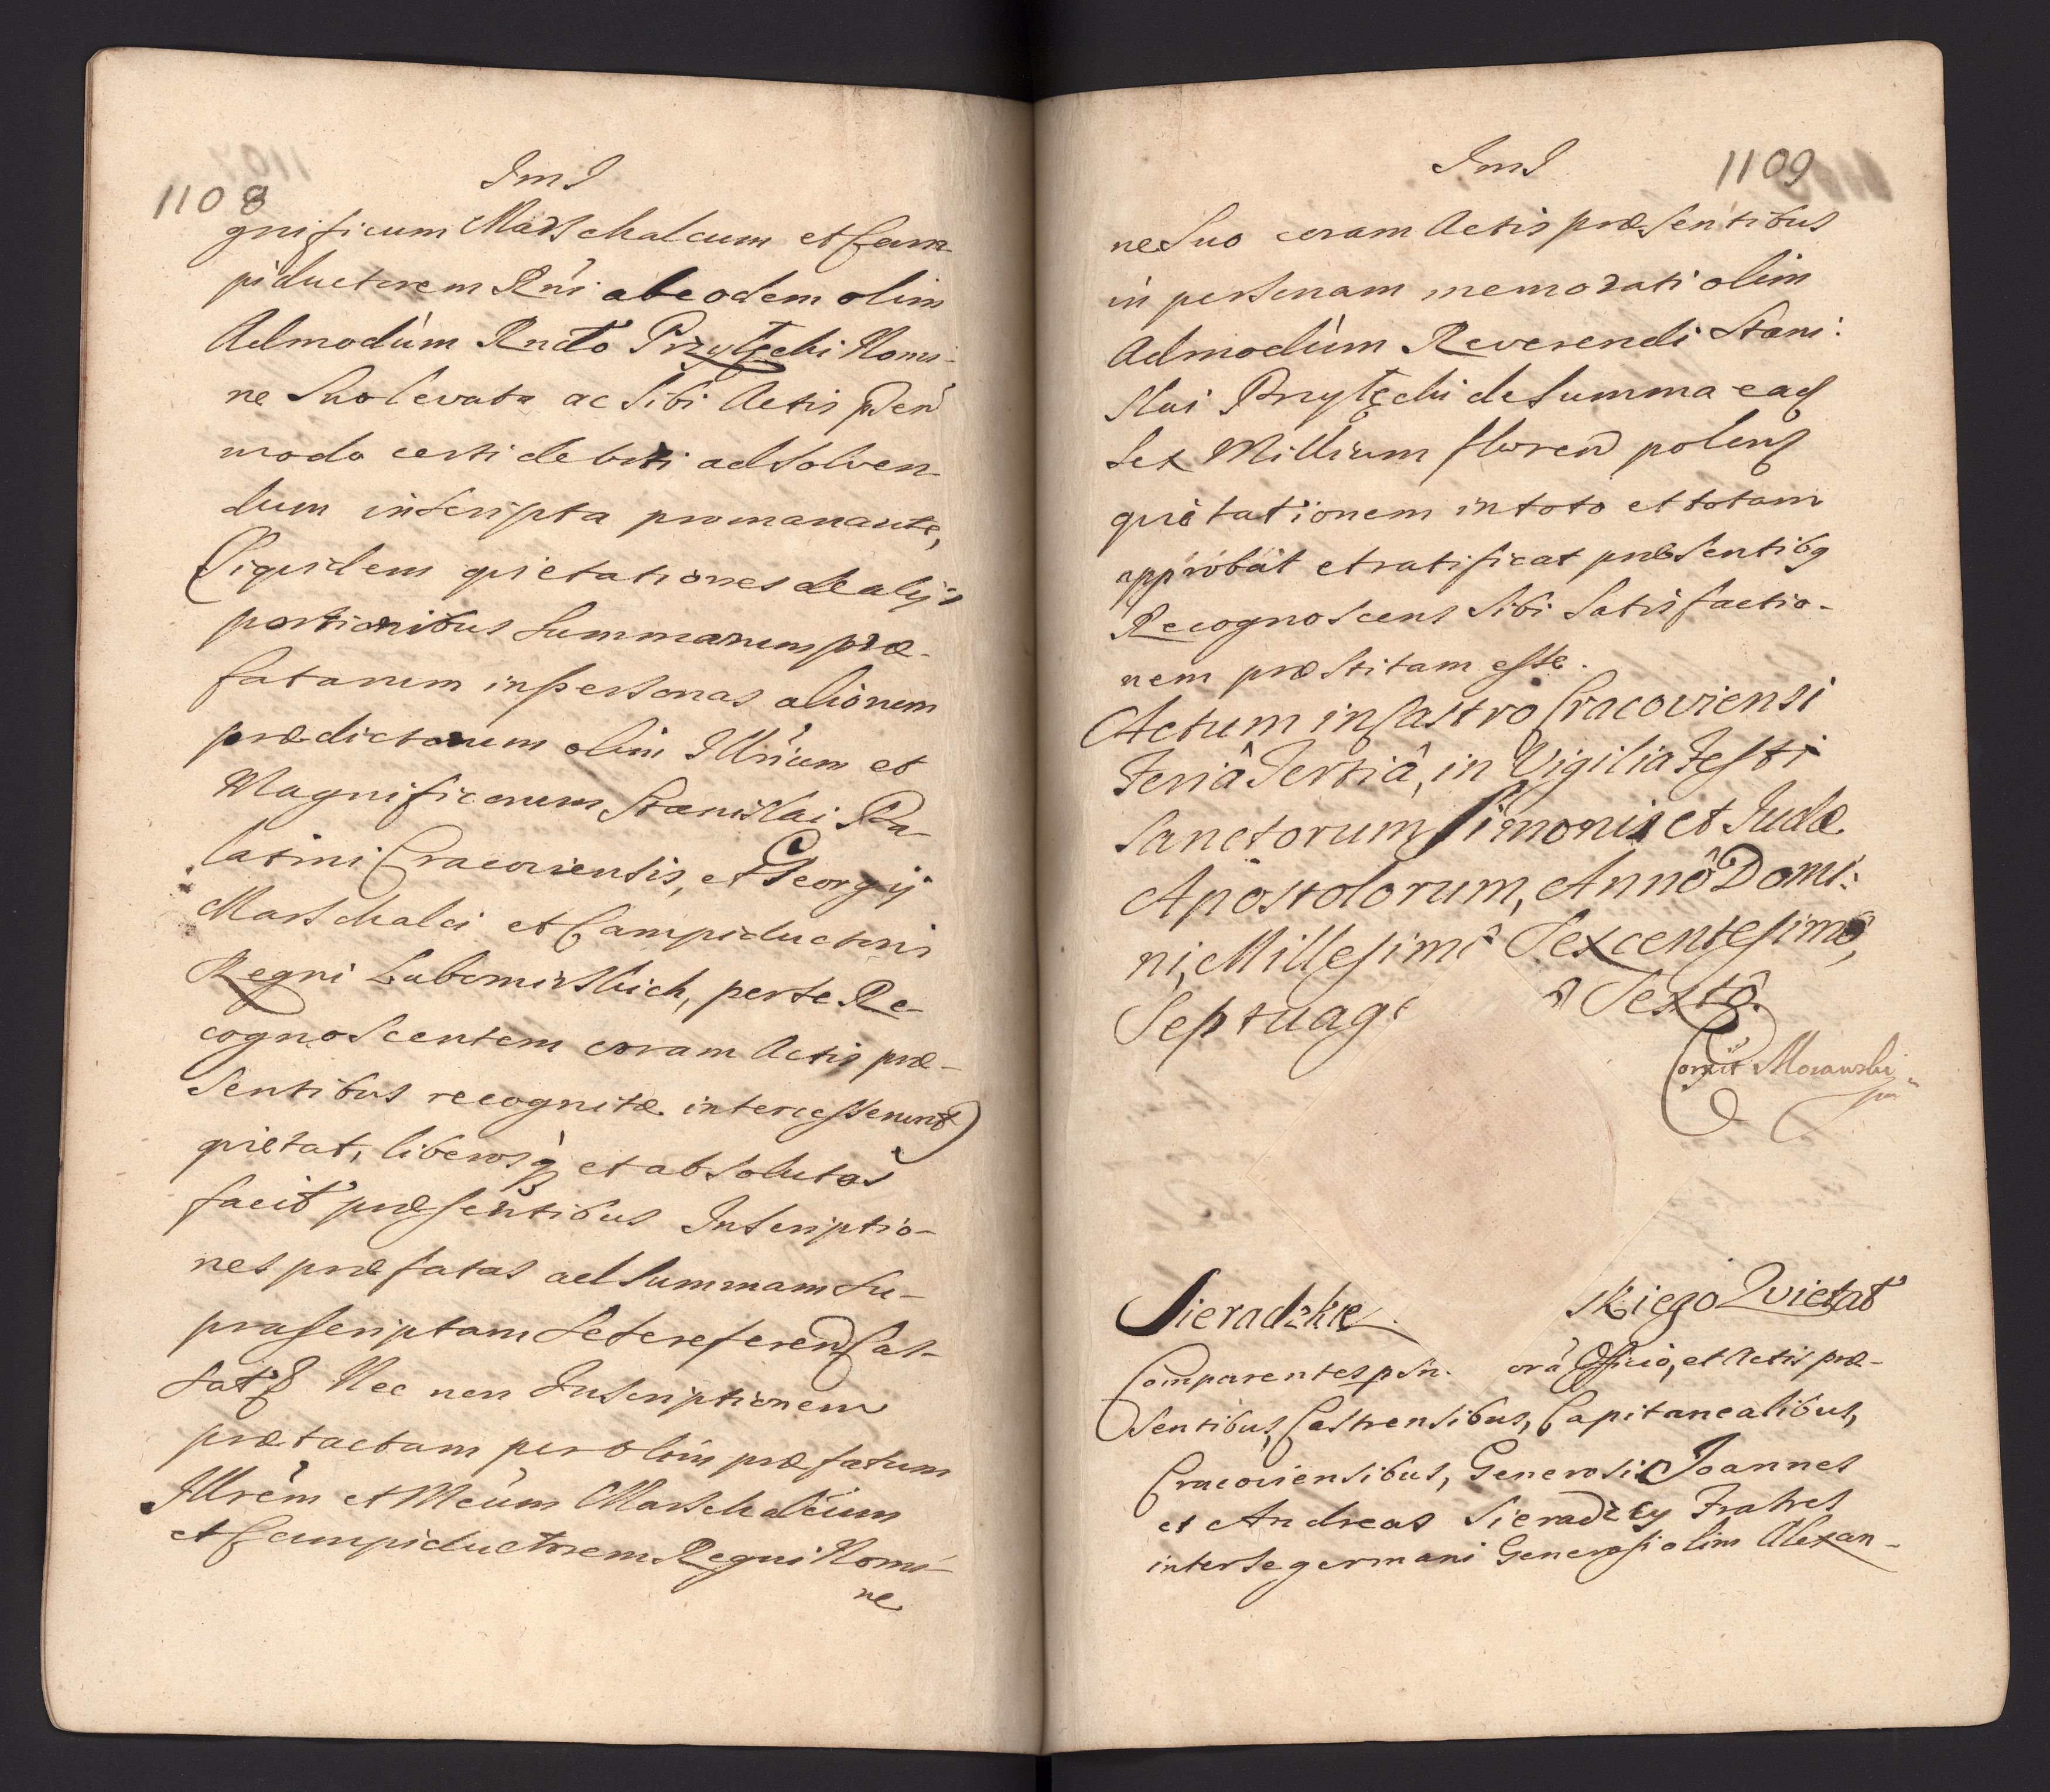 1108
JmJ
gnificum Marschalcum et Cam-
piductorem Rni ab eodem olim
Admodum Rndo Przyłęcki Nomi-
ne Suo levata ac Sibi Actis pñ
modo certi debiti ad Solven-
dum inscripta promanante,
(Siquidem quietationes de alijs
portionibus Summarum præ-
fatarum in personas aliorum
prædictorum olim Illrium et
Magnificorum Stanislai Pa-
latini Cracoviensis, et Georgij
Marschalci et Campiductoris
Regni Lubomirskich, per se Re-
cognoscentem coram Actis præ-
sentibus recognitæ intercesserunt)
quietat, liberosq et absolutos
facit præsentibus Inscriptio-
nes præfatas ad Summam Su-
prascriptam Se se referen Cas-
Sat Nec non Inscriptionem
prætactam per olim præfatum
Illrem et Mcum Marschalcum
et Campiductorem Regni Nomi-
ne
JmJ
1109
ne Suo coram Actis præsentibus
in personam memorati olim
Admodum Reverendi Stani:
Slai Przyłęcki de Summa ead
Sex Millium floren polon
quietationem in toto et totam
approbat et ratificat præsentibq
Recognoscens Sibi Satisfactio-
nem præstitam esse.
Actum in Castro Cracoviensi
Feriâ Tertiâ, in Vigilia Festi
Sanctorum Simonis et Judæ
Apostolorum, Annô Domi:
ni, Millesimo Sexcentesimô,
Septuage Sextô.
Corrit Morawski
Sieradzkie skiego Quietat
Comparentes psñ. orã Officio, et Actis præ-
sentibus, Castrensibus, Capitanealibus,
Cracoviensibus, Generosi Joannes
et Andreas Sieradzcy Fratres
inter se germani Generosi olim Alexan-